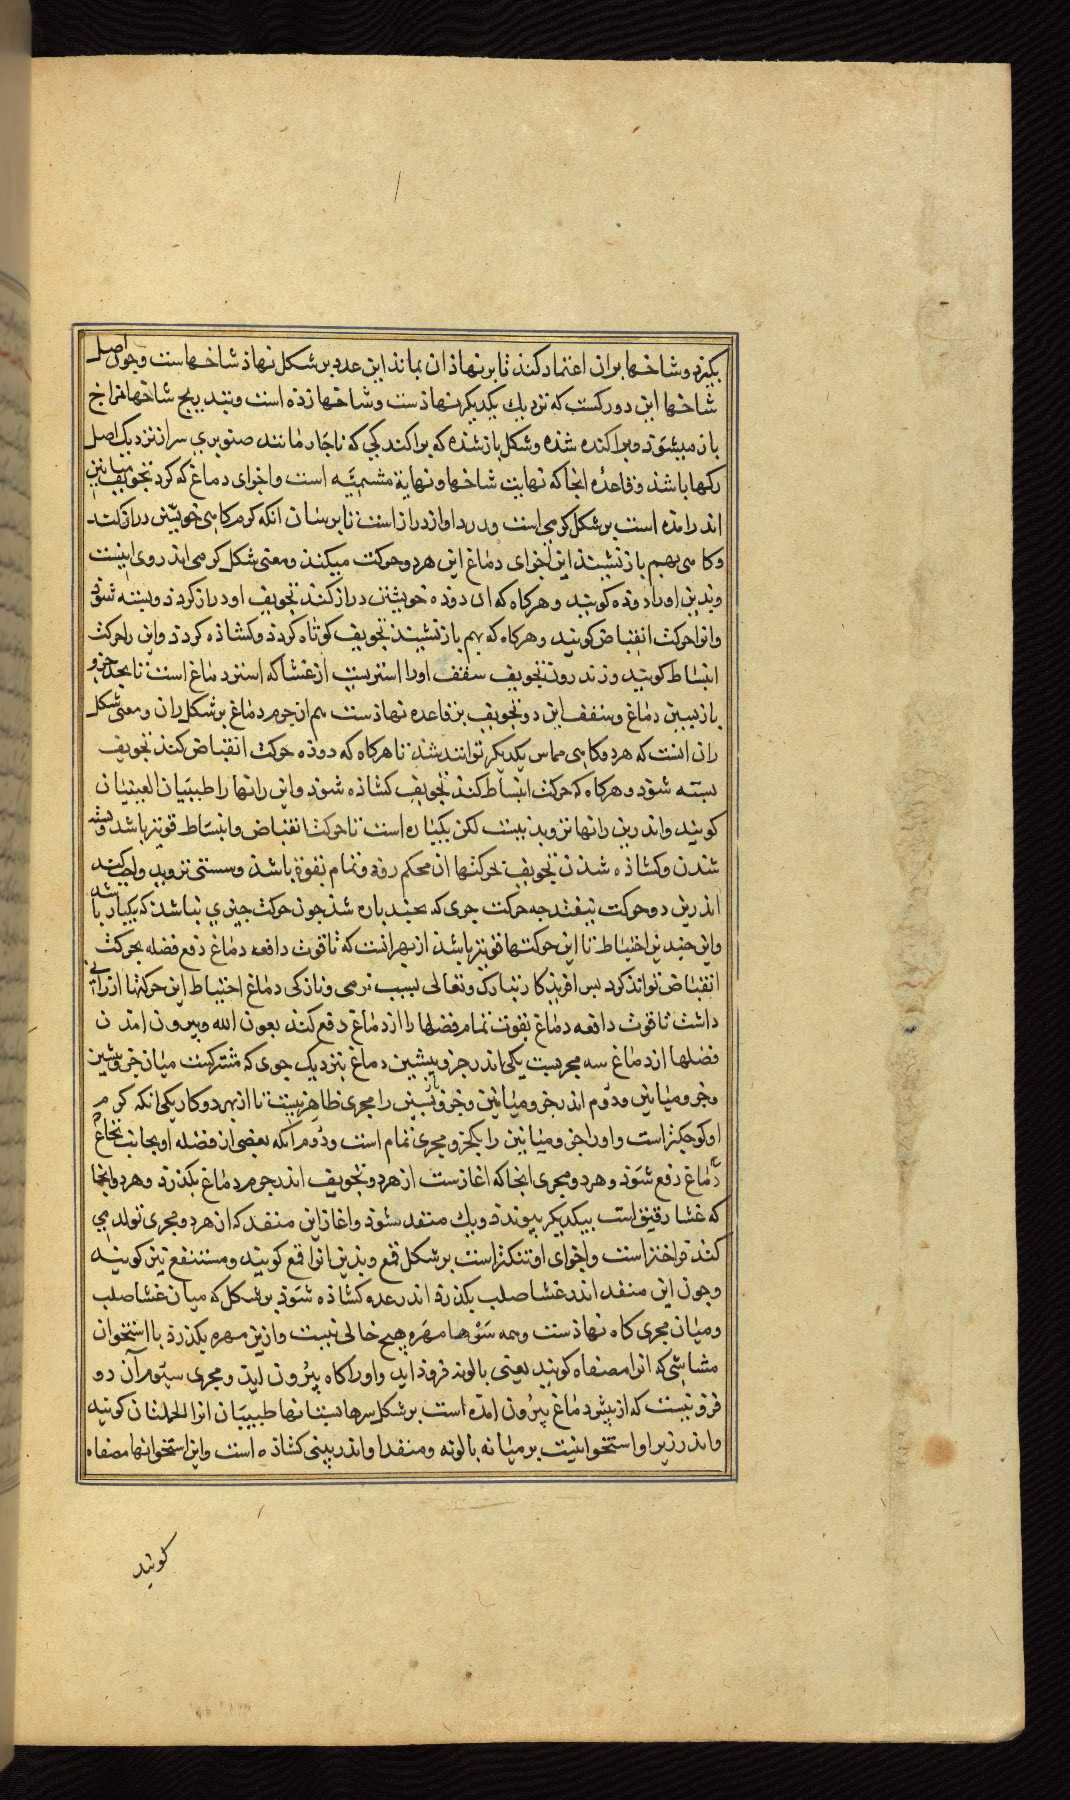 بکیرد و شاخها بران اعتماد کند تا بر نهاذ ان بماند این عدد بر شکل نهاذ شاخهاست و جون اصل
شاخها این دو رکست که نزدیك یکدیکر نهاذست و شاخها زده است و بتدریج شاخها فراخ
باز میشود و براکنده شده و شکل باز شده که براکندکی که ناجار مانند صنوبری سر از نزدیک اصل
رکها باشذ و قاعده انجا که نهایت شاخها و نهایة مشیمیّه است و اجزای دماغ که کرد تجویف میانین
اندر امده است بر شکل کرمی است و در درازا و ازدر از است تا برسان انکه کرم کاهی خویشتن دراز کند
و کاهی بهم باز نشیند این اجزای دماغ این هر دو حرکت میکند و معنی شکل کرمی از روی اینست
و بدین او را دوده کویند و هر کاه که ان دوده خویشتن دراز کند تجویف او دراز کردد و بسته شود
و انرا حرکت انقباض کویند و هر کاه که بهم باز نشیند تجویف کوتاه کردد و کشاذه کردد و این را حرکت
انبساط کویند و زندرون تجویف سقف اورا استریست از غشا که استر دماغ است تا بحد جزو
بازبسین دماغ و سقف این دو تجویف بر قاعده نهاذست هم از جرم دماغ بر شکل ران و معنی شکل
ران انست که هر دو کاهی مماس یکدیکر توانند شد تا هر کاه که دوده حرکت انقباض کند تجویف
بسته شود و هر کاه که حرکت انبساط کند تجویف کشاذه شود و این رانها را طبیبان العینیان
کویند و اندرین رانها نزوید نیست لکن یکباره است تا حرکت انقباض و انبساط قویتر باشد و بسته
شدن و کشاذه شذن تجویف بحرکتها ان محکم روذ و تمام بقوة باشذ و سستی نروید و اجب کند
اندرین دو حرکت نیفتد جه حرکت جوی که بجند باره شد جون حرکت جیزی نباشد که یکباره باشد
و این جندین احتیاط تا این حرکتها قویتر باشذ از بهر انست که تا قوت دافعه دماغ دفع فضله بحرکت
انقباض تواند کرد بس افریذکار تبارک و تعالی بسبب نرمی و نازکی دماغ احتیاط این حرکتها ارزانی
داشت تا قوت دافعه دماغ بقوت تمام فضلها را از دماغ دفع کند بعون الله و بیرون امدن
فضلها از دماغ سه مجریست یکی اندر جزو بیشین دماغ بنزدیک جوی که مشترکست میان جزو بیشین
و جزو میانین و دوم اندر جزو میانین و جزو بسین را مجری ظاهر نیست تا از بهر دو کار یکی انکه کرم
او کوجکتر است و او را جزو میانین را یکجزو مجری تمام است و دوم انکه بعضی از فضله او بجانب نخاع
دماغ دفع شود و هر دو مجری انجا که اغازست از هر دو تجویف اندر جرم دماغ بکذرد و هر دو انجا
که غشا رقیق است بیکدیکر بیوندد و یك منفد شود و اغاز این منفد که از هر دو مجری تولد می
کند فراختر است و اجزای او تنکتر است بر شکل قمع و بذین انرا قمع کویند و مستنقع نیز کویند
و جون این منفد اندر غشا صلب بکذرد اندر عده کشاذه شود بر شکل که میان غشا صلب
و میان مجری کاه نهاذست و همه سوها مهره هیچ خالی نیست و ازین مهره بکذرد با استخوان
مشاشی که انرا مصفاه کویند یعنی بالونه فروذ اید و اورا کاه بیرون اید و مجری سیّوم آن دو
فزونیست که از بیش دماغ بیرون امده است بر شکل سرهاء بستانها طبیبان انرا الحلمتان کویند
و اندر زیر او استخوانیست بر میانه بالونه و منفد او اندر بینی کشاذه است و این استخوانها مصفاه
کویند